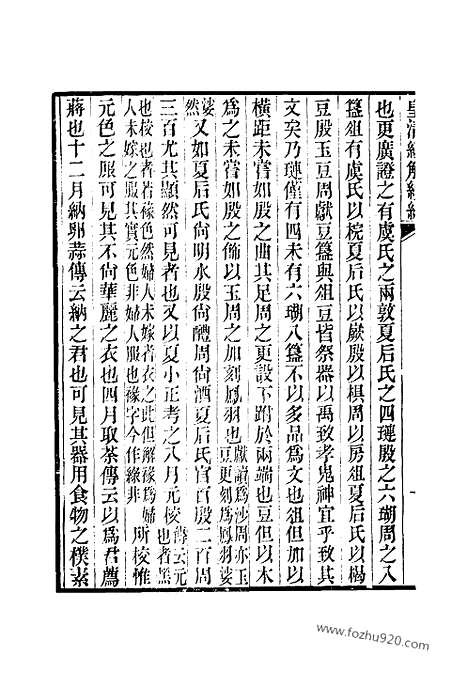 皇清經解續編
也更廣證之有虞氏之兩敦夏后氏之四璉殷之六瑚周之八
簋俎有虞氏以梡夏后氏以嶡殷以椇周以房俎夏后氏以楬
豆殷玉豆周獻豆簋與俎豆皆祭器以禹致孝鬼神宜乎致其
文矣乃璉僅有四未有六瑚八簋不以多品爲文也俎但加以
橫距未嘗如殷之曲其足周之更設下跗於兩端也豆但以木
爲之未嘗如殷之飾以玉周之加刻鳳羽也獻讀爲沙周亦玉豆更刻爲鳳羽娑
娑然又如夏后氏尚明水殷尚醴周尚酒夏后氏官百殷二百周
三百尤其顯然可見者也又以夏小正考之八月元校傳云元也者黑
也校也者若褖色然婦人未嫁者衣之此但解褖爲婦人未嫁之服其實元色非婦人服也褖字今作綠非所校惟
元色之服可見其不尚華麗之衣也四月取荼傳云以爲君薦
蔣也十二月納卵蒜傳云納之君也可見其器用食物之樸素
www.fozhu920.com